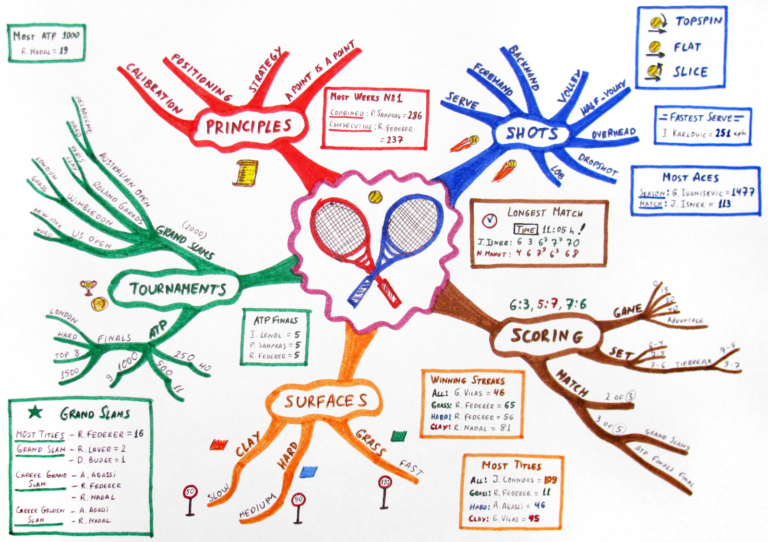 MOST ATP 1000
R. NADAL = 19
CALIBRATION
POSITIONING
STRATEGY
A POINT IS A POINT
PRINCIPLES
MOST WEEKS NB1
COMBINED: P. SAMPRAS = 286
CONSECUTIVE: R. FEDERER
= 237
SERVE
FOREHAND
BACKHAND
VOLLEY
HALF-VOLLEY
OVERHEAD
DROPSHOT
LOB
SHOTS
TOPSPIN
FLAT
SLICE
FASTEST SERVE
I. KARLOVIC = 251 KPH
MOST ACES
SEASON: G. IVANISEVIC = 1477
MATCH: J. ISNER = 113
LONGEST MATCH
TIME 11:05 H!
J. ISNER: 6 3 6⁷ 7⁹ 70
N. MAHUT: 4 6 7⁹ 6⁷ 68
MELBOURNE
HARD
AUSTRALIAN OPEN
PARIS
CLAY
ROLAND GARROS
LONDON
GRASS
WIMBLEDON
NEW YORK
HARD
US OPEN
(2000)
GRAND SLAMS
TOURNAMENTS
ATP
FINALS
LONDON
HARD
TOP 8
1500
1000
9
500
11
250
40
ATP FINALS
I. LENDL = 5
P. SAMPRAS = 5
R. FEDERER = 5
6:3, 5:7, 7:6
SCORING
GAME
ADVANTAGE
SET
7-5
7-6
TIEBREAK
MATCH
2 OF 3
3 OF 5
GRAND SLAMS
ATP FINALS FINAL
SURFACES
CLAY
SLOW
HARD
MEDIUM
GRASS
FAST
50
90
130
WINNING STREAKS
ALL: G. VILAS = 46
GRASS: R. FEDERER = 65
HARD: R. FEDERER = 56
CLAY: R. NADAL = 81
MOST TITLES
ALL: J. CONNORS = 109
GRASS: R. FEDERER = 11
HARD: A. AGASSI = 46
CLAY: G. VILAS = 45
GRAND SLAMS
MOST TITLES - R. FEDERER = 16
GRAND SLAM - R. LAVER = 2
- D. BUDGE = 1
CAREER GRAND - A. AGASSI
SLAM - R. FEDERER
- R. NADAL
CAREER GOLDEN - A. AGASI
SLAM - R. NADAL